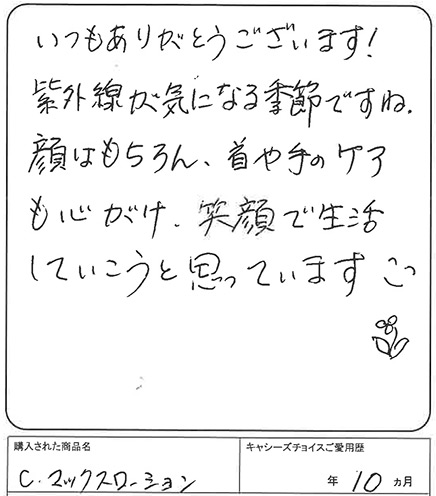 いつもありがとうございます!
紫外線が気になる季節ですね.
顔はもちろん、首や手のケア
も心がけ、笑顔で生活
していこうと思っています
購入された商品名
キャシーズチョイスご愛用歴
C.マックスローション
年 10 ヵ月